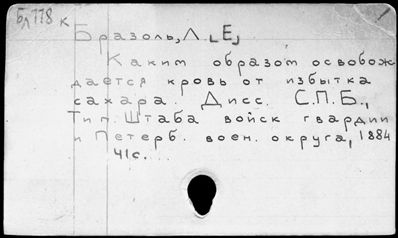 Бл 778 к
Бразоль, Л. [Е]
Каким образом освобож
дается кровь от избытка
сахара. Дисс. С.П.Б.,
Тип. Штаба войск гвардии
и Петерб. воен. округа, 1884
41с.